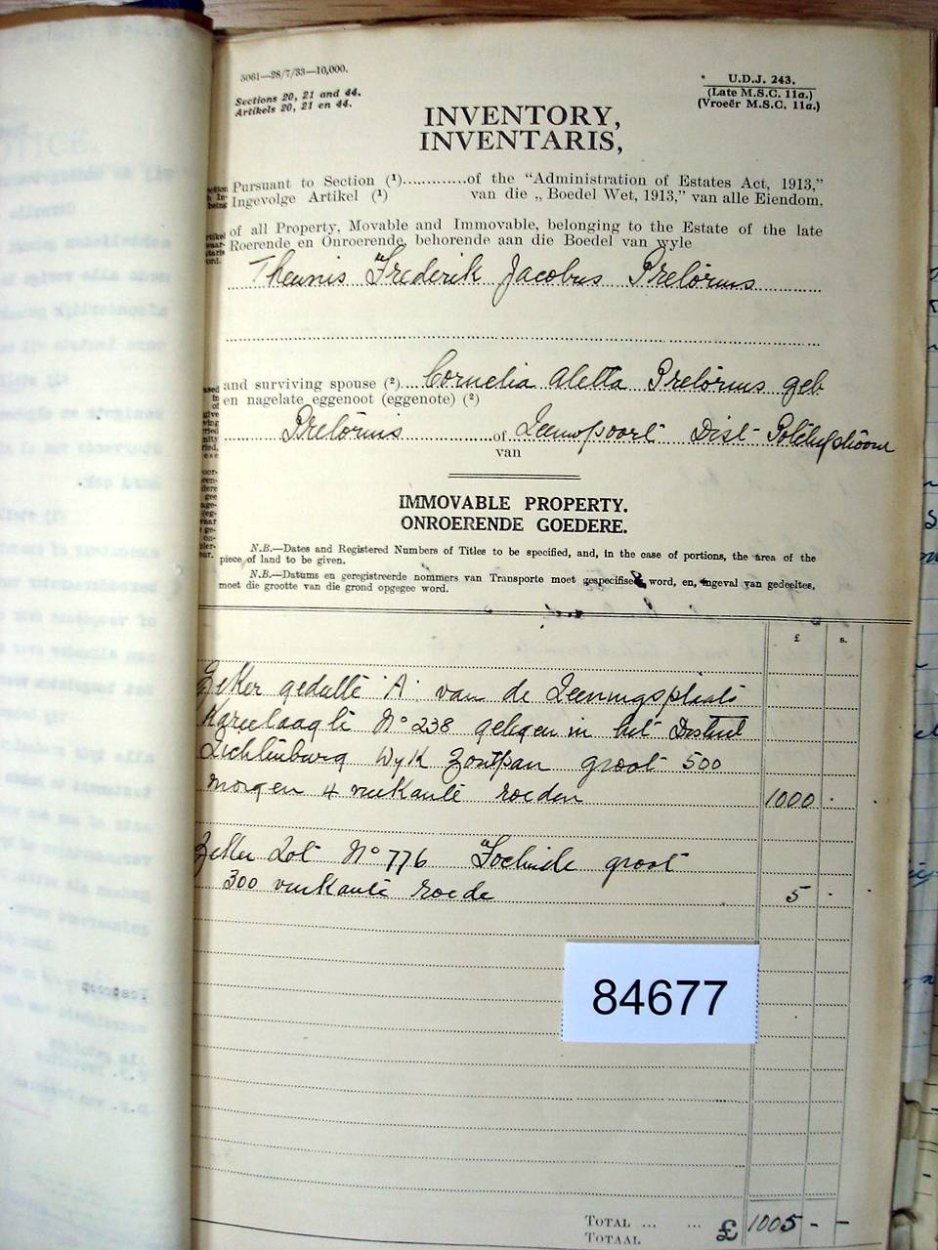 5061—28/7/33—10,000.
Sections 20, 21 and 44.
Artikels 20, 21 en 44.
U.D.J. 243.
(Late M.S.C. 11a.)
(Vroeër M.S.C. 11a.)
INVENTORY,
INVENTARIS,
Pursuant to Section (¹)............of the "Administration of Estates Act, 1913,"
Ingevolge Artikel (¹) van die „ Boedel Wet, 1913," van alle Eiendom,
of all Property, Movable and Immovable, belonging to the Estate of the late
Roerende en Onroerende, behorende aan die Boedel van wyle
Theunis Frederik Jacobus Pretorius
and surviving spouse (²) Cornelia Aletta Pretorius geb
en nagelate eggenoot (eggenote) (²)
Pretorius of Leeuwpoort Dist Potchefstroom
van
IMMOVABLE PROPERTY.
ONROERENDE GOEDERE.
N.B.—Dates and Registered Numbers of Titles to be specified, and, in the case of portions, the area of the
piece of land to be given.
N.B.—Datums en geregistreerde nommers van Transporte moet gespecifiseer word, en, ingeval van gedeeltes,
moet die grootte van die grond opgegee word.
£ s.
Zeker gedeelte 'A' van de Leeningsplaats
Kareelaagte No 238 gelegen in het District
Lichtenburg Wyk Zoutpan groot 500
morgen 4 vierkante roeden 1000 -
Zeker Lot No 776 groot
300 vierkante roede 5 -
84677
TOTAL ... ... £ 1005 - -
TOTAAL